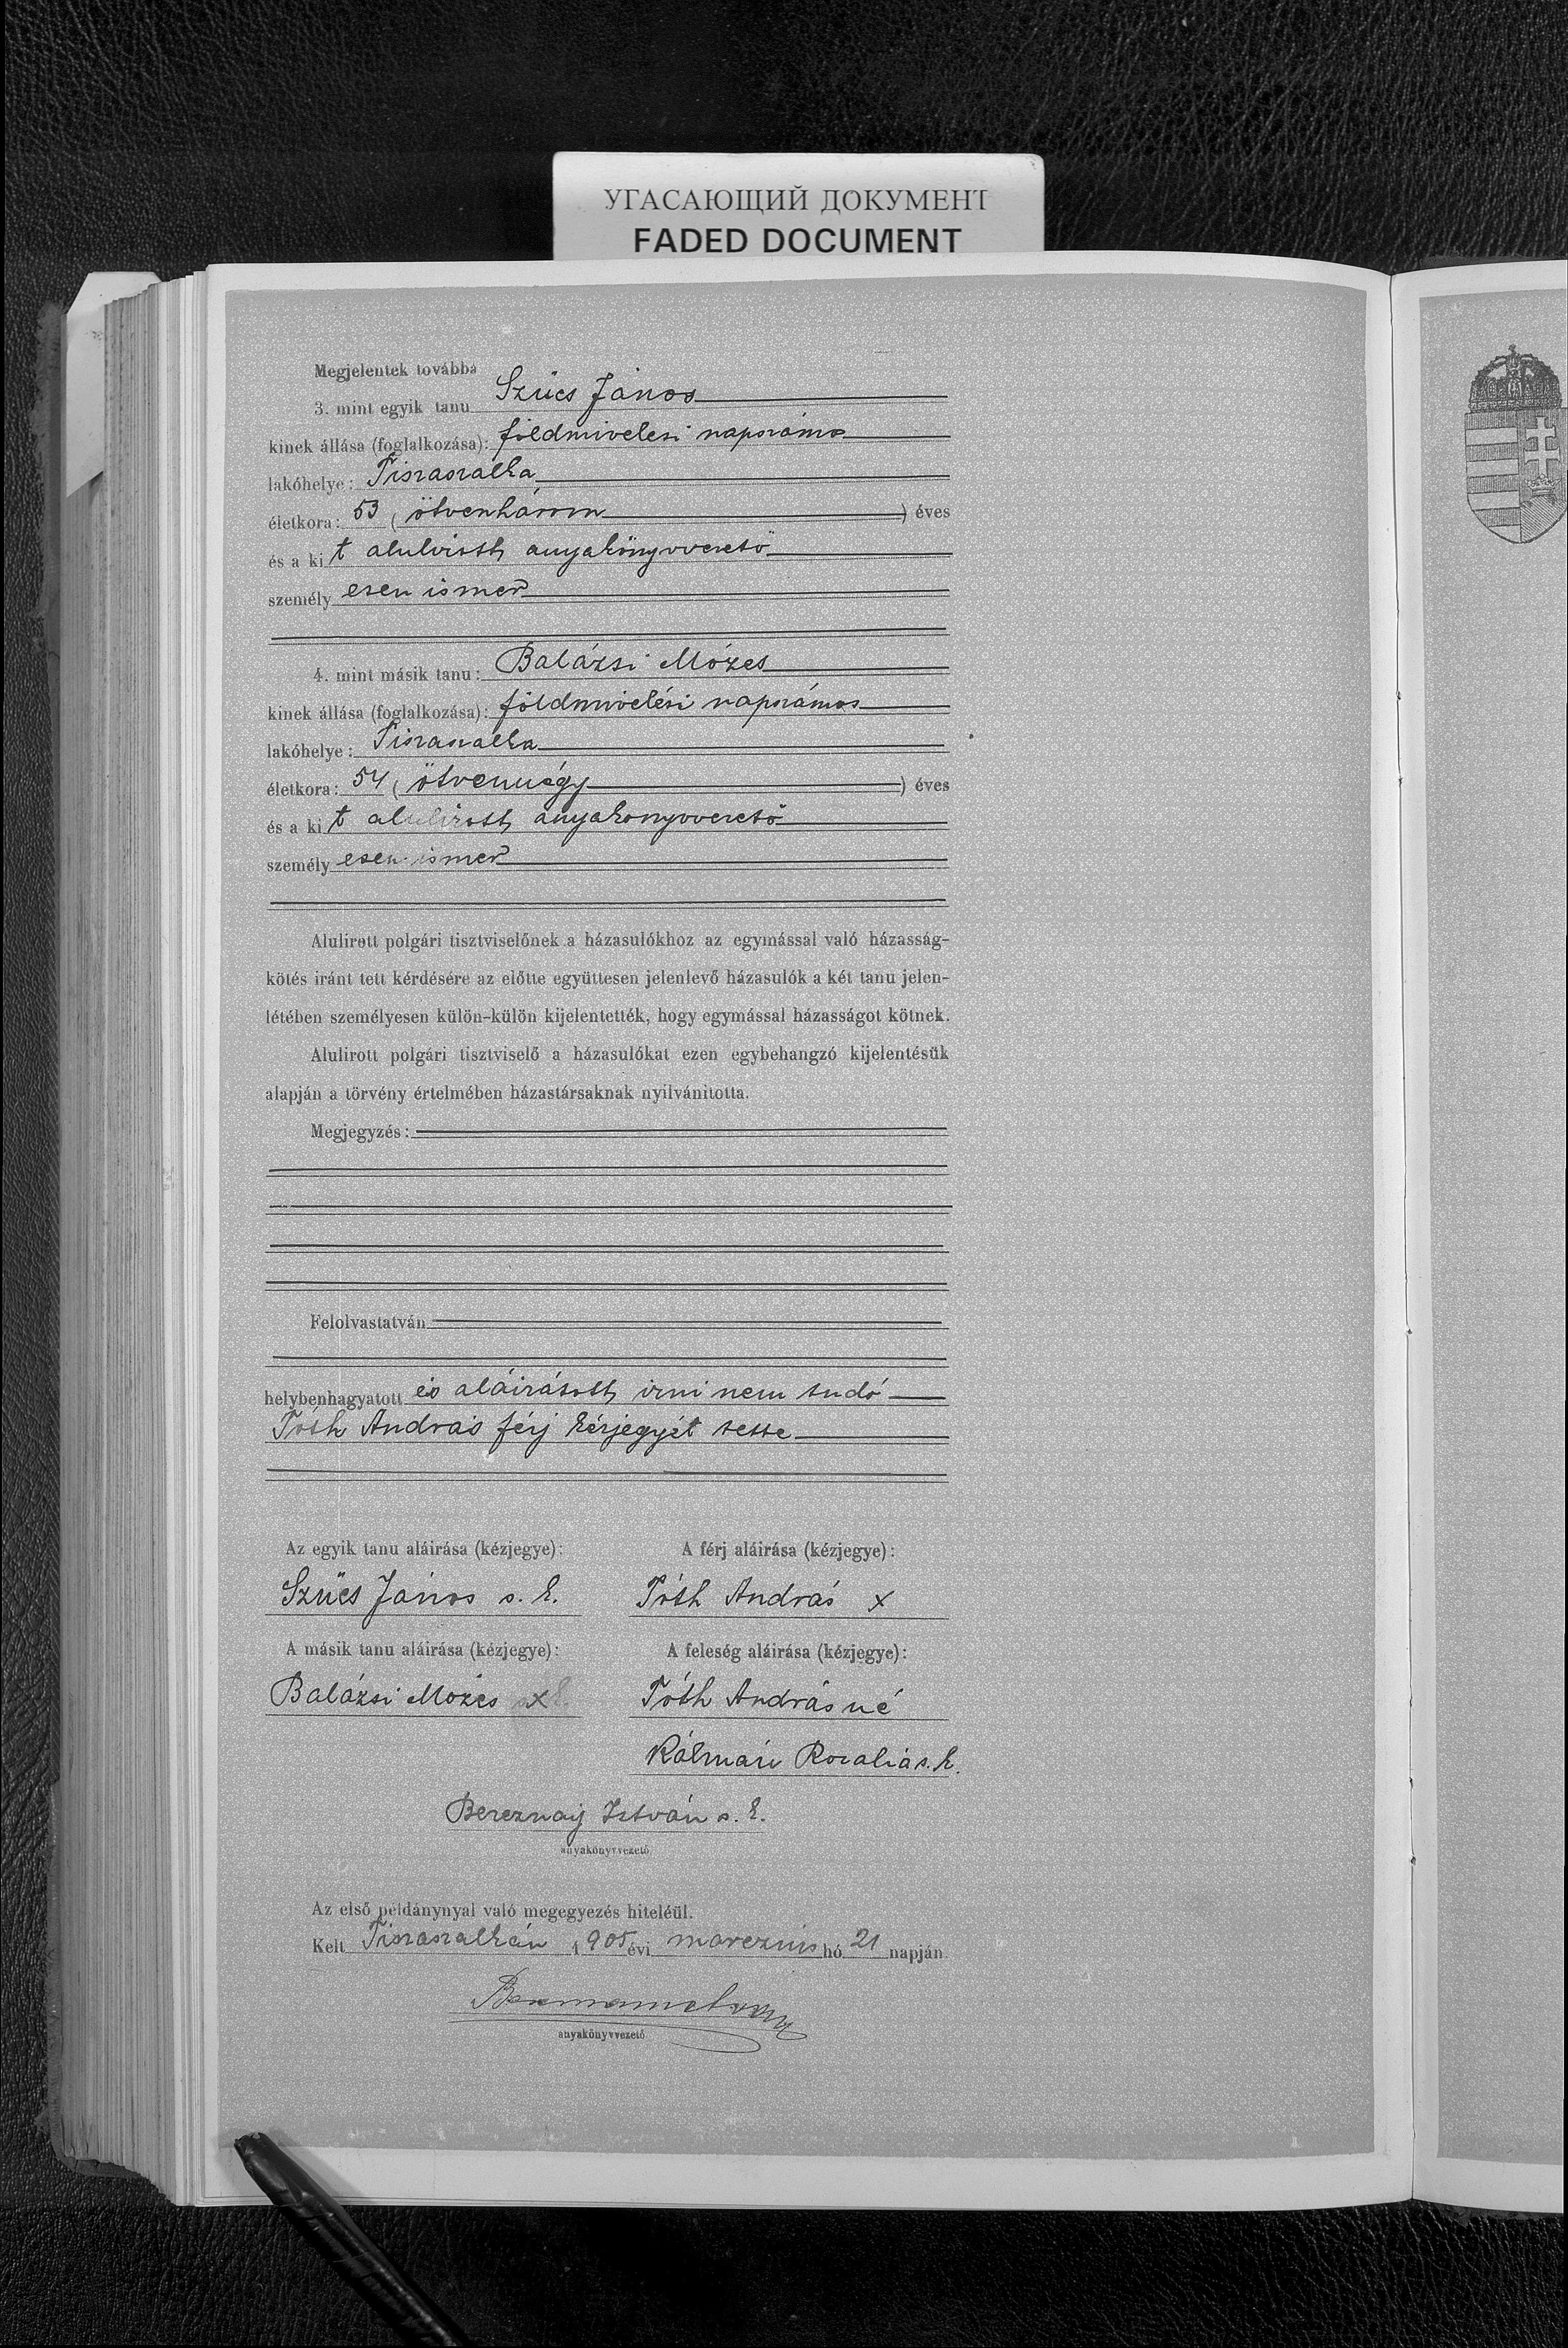 УГАСАЮЩИЙ ДОКУМЕНТ
FADED DOCUMENT
Megjelentek továbbá
3. mint egyik tanu Szűcs János
kinek állása (foglalkozása): földmivelesi napszámos
lakóhelye: Tiszaszalka
életkora: 53 (ötvenhárom) éves
és a kit alulirott anyakönyvvezető
személyesen ismer
4. mint másik tanu: Balázsi Mózes
kinek állása (foglalkozása): földmivelési napszámos
lakóhelye: Tiszaszalka
életkora: 54 (ötvennégy) éves
és a kit alulirott anyakönyvvezető
személyesen ismer
Alulirott polgári tisztviselőnek a házasulókhoz az egymással való házasság-
kötés iránt tett kérdésére az előtte együttesen jelenlevő házasulók a két tanu jelen-
létében személyesen külön-külön kijelentették, hogy egymással házasságot kötnek.
Alulirott polgári tisztviselő a házasulókat ezen egybehangzó kijelentésük
alapján a törvény értelmében házastársaknak nyilvánitotta.
Megjegyzés:
Felolvastatván
helybenhagyatott és aláirátott, irni nem tudó
Tóth András férj kézjegyét tette
Az egyik tanu aláirása (kézjegye): A férj aláirása (kézjegye):
Szűcs János s. k. Tóth András x
A másik tanu aláirása (kézjegye): A feleség aláirása (kézjegye):
Balázsi Mózes x Tóth Andrásné
Kálmán Rozália s. k.
Bereznay István s. k.
anyakönyvvezető
Az első példánynyal való megegyezés hiteléül.
Kelt Tiszaszalkán 1905 évi marczius hó 21 napján
anyakönyvvezető